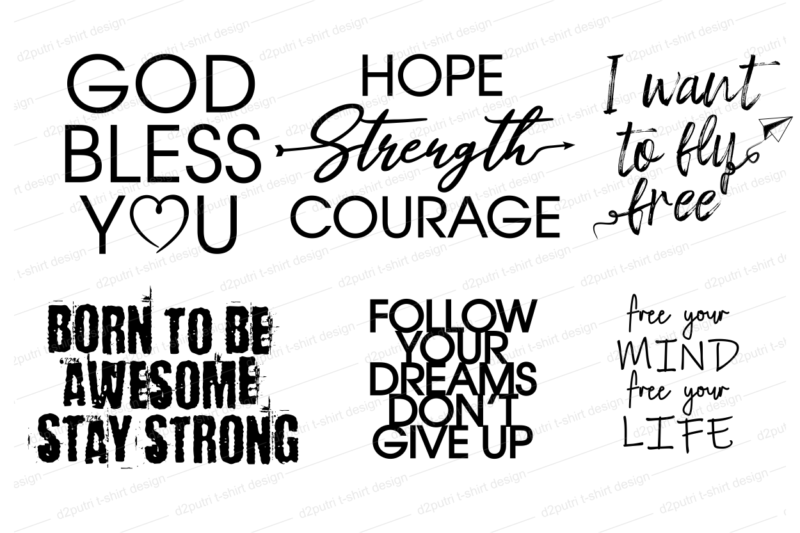 GOD
BLESS
YOU
HOPE
Strength
COURAGE
I want
to fly
free
BORN TO BE
AWESOME
STAY STRONG
FOLLOW
YOUR
DREAMS
DON'T
GIVE UP
free your
MIND
free your
LIFE
d2putri t-shirt design